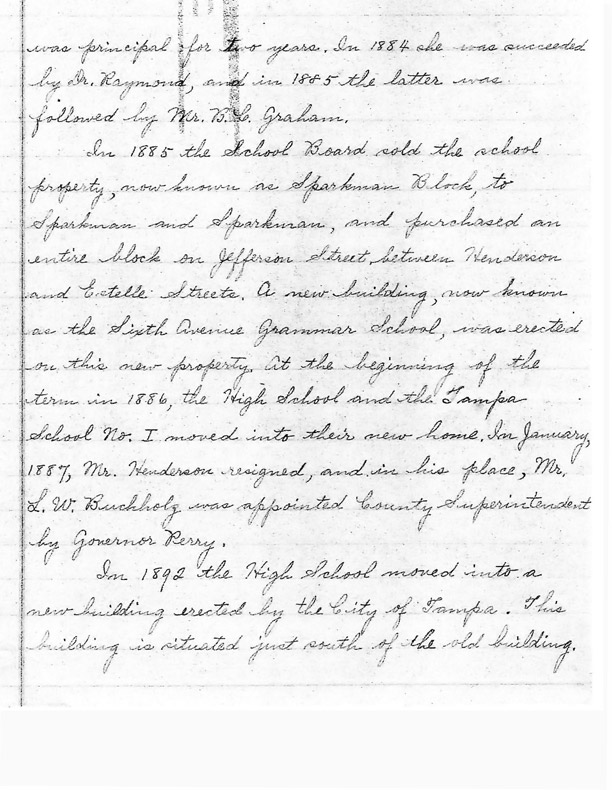 was principal for two years. In 1884 she was succeeded
by Dr. Raymond, and in 1885 the latter was
followed by Mr. B. L. Graham.
In 1885 the School Board sold the school
property, now known as Sparkman Block, to
Sparkman and Sparkman, and purchased an
entire block on Jefferson Street between Henderson
and Estelle Streets. A new building, now known
as the Sixth Avenue Grammar School, was erected
on this new property. At the beginning of the
term in 1886, the High School and the Tampa
School No. I moved into their new home. In January,
1887, Mr. Henderson resigned, and in his place, Mr.
L. W. Buchholz was appointed County Superintendent
by Governor Perry.
In 1892 the High School moved into a
new building erected by the City of Tampa. This
building is situated just south of the old building.